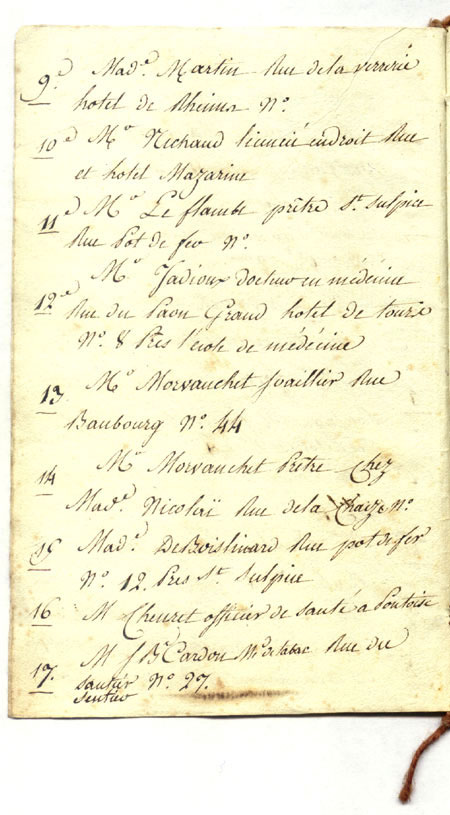 9.e Mad.e Martin Rue de la verrerie
hotel de Rheims N.o
10.e M.r Nichaud licencié endroit Rue
et hotel Mazarine
11.e M.r Le flambe prêtre S.t Sulpice
Rue Pot de fer N.o
M.r Jadioux docteur en médecine
12.e Rue du Paon Grand hotel de tours
N.o 8 Pres l'école de médécine
13 M.r Morvanchet Joaillier Rue
Baubourg N.o 44
14 M.r Morvanchet Prêtre Chez
Mad.e Nicolaï Rue de la Chaize N.o
15 Mad.e DeBoislinard Rue pot de fer
N.o 12 Pres S.t Sulpice
16 M Cheuret officier de santé a Pontoise
17. M J B Cardon M.d de tabac Rue du
sautier N.o 27.
sentier